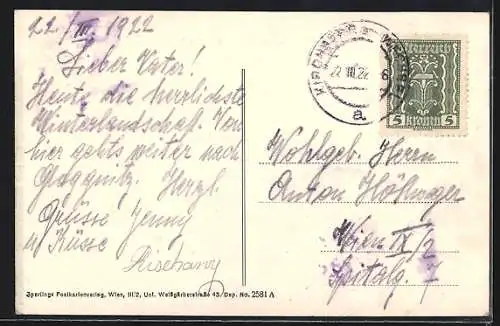 22/III. 1922
Lieber Vater!
Heute die herrlichste
Winterlandschaft. Von
hier gehts weiter nach
Gloggnitz. Herzl.
Grüsse Jenny
u Küsse
22 III 22
a
Österreich
5 Kronen 5
Wohlgeb. Herrn
Anton
Wien IX/2
Spitalg. 7
Sperlings Postkartenverlag, Wien, III/2, Unt. Weißgärberstraße 43/Dep. No. 2581 A